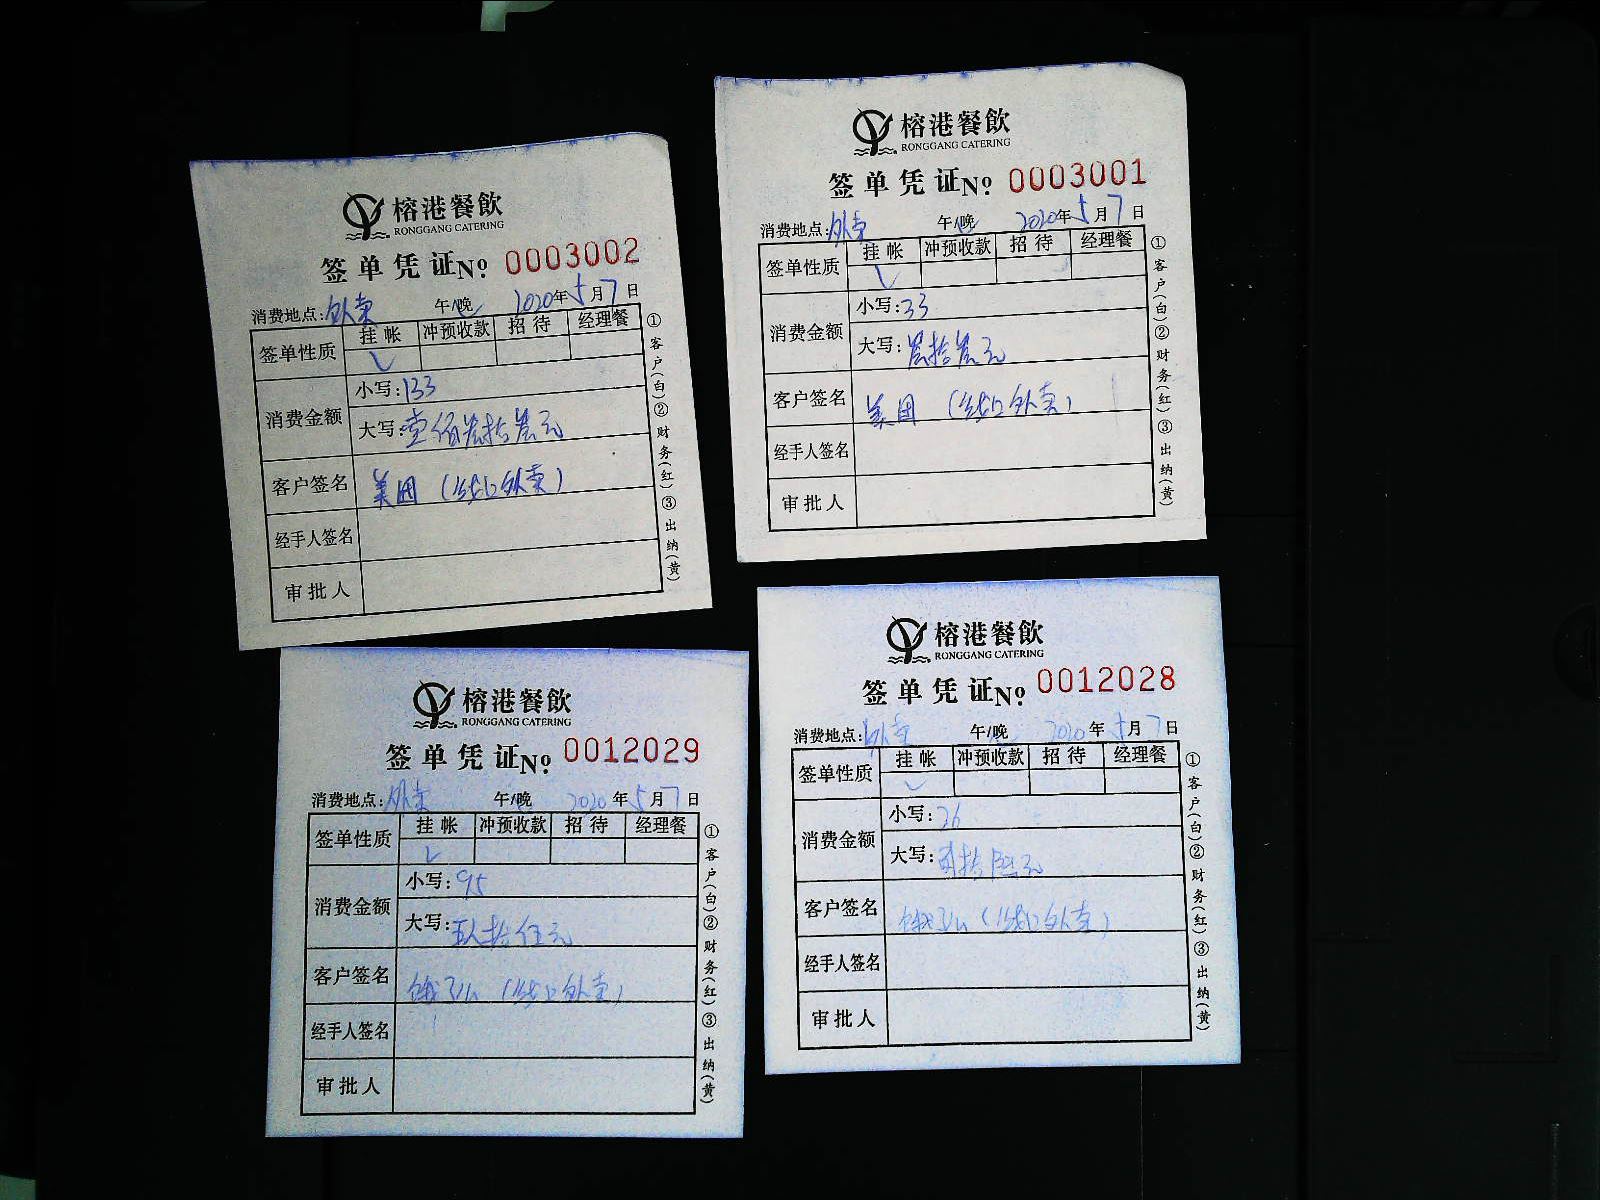 榕港餐飲
RONGGANG CATERING
签单凭证№ 0003002
消费地点:外卖 午/晚 2020年5月7日
签单性质 挂帐 冲预收款 招待 经理餐
✓
消费金额 小写:133
大写:壹佰叁拾叁元
客户签名 美团(线上外卖)
经手人签名
审批人
①客户(白)②财务(红)③出纳(黄)
榕港餐飲
RONGGANG CATERING
签单凭证№ 0003001
消费地点:外卖 午/晚 2020年5月7日
签单性质 挂帐 冲预收款 招待 经理餐
✓
消费金额 小写:33
大写:叁拾叁元
客户签名 美团(线上外卖)
经手人签名
审批人
①客户(白)②财务(红)③出纳(黄)
榕港餐飲
RONGGANG CATERING
签单凭证№ 0012029
消费地点:外卖 午/晚 2020年5月7日
签单性质 挂帐 冲预收款 招待 经理餐
✓
消费金额 小写:95
大写:玖拾伍元
客户签名 饿了么(线上外卖)
经手人签名
审批人
①客户(白)②财务(红)③出纳(黄)
榕港餐飲
RONGGANG CATERING
签单凭证№ 0012028
消费地点:外卖 午/晚 2020年5月7日
签单性质 挂帐 冲预收款 招待 经理餐
✓
消费金额 小写:26
大写:贰拾陆元
客户签名 饿了么(线上外卖)
经手人签名
审批人
①客户(白)②财务(红)③出纳(黄)